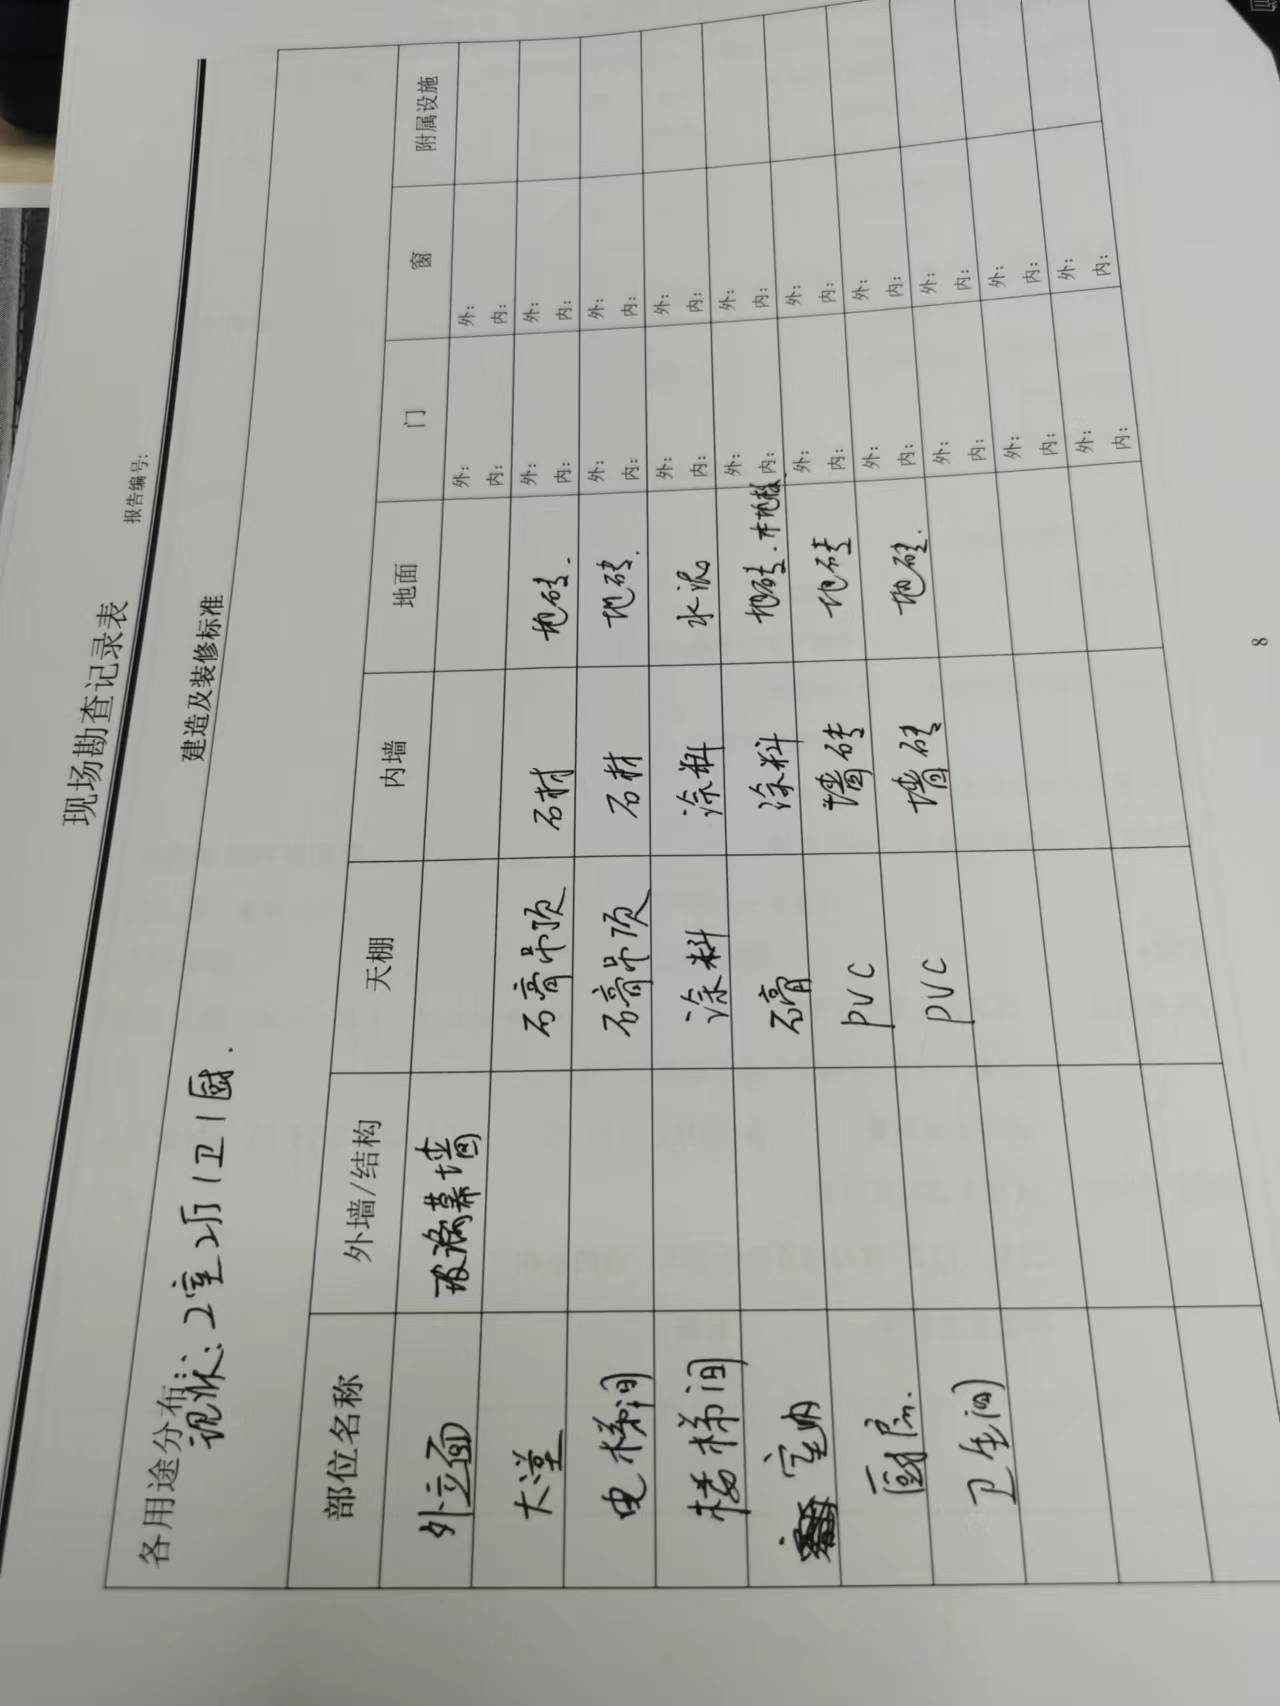 现场勘查记录表
报告编号:
建造及装修标准
各用途分布:
现状: 2室2厅1卫1厨.
部位名称 外墙/结构 天棚 内墙 地面 门 窗 附属设施
外立面 玻璃幕墙 外: 内: 外: 内:
大堂 石膏吊顶 石材 地砖. 外: 内: 外: 内:
电梯间 石膏吊顶 石材 地砖. 外: 内: 外: 内:
楼梯间 涂料 涂料 水泥 外: 内: 外: 内:
室内 石膏 涂料 地砖.木地板. 外: 内: 外: 内:
厨房. PVC 墙砖 地砖 外: 内: 外: 内:
卫生间 PVC 墙砖 地砖. 外: 内: 外: 内:
外: 内: 外: 内:
外: 内: 外: 内:
外: 内: 外: 内:
8